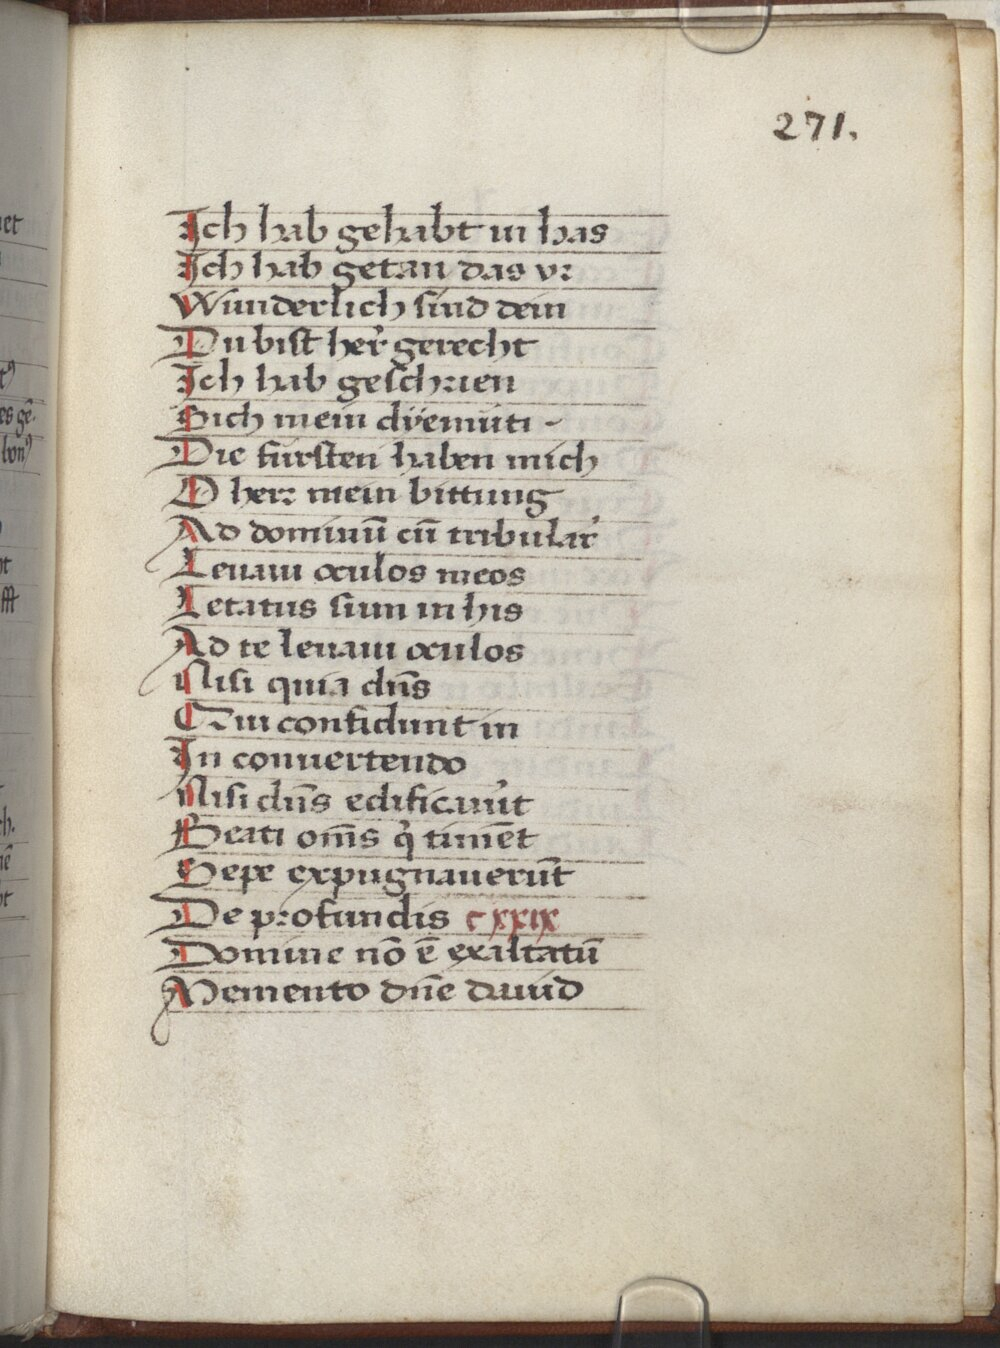 271.
Ich hab gehabt in has
Ich hab getan das vr
Wunderlich sind dein
Du bist her̾ gerecht
Ich hab geschrien
Sich mein dÿemuti -
Die fursten haben mich
O herr mein bittung
Ad dominū cū tribular̾
Leuaui oculos meos
Letatus sum in his
Ad te leuaui oculos
Nisi quia dn̄s
Qui confidunt in
In conuertendo
Nisi dn̄s edificau̾it
Beati om̄s q̾ timēt
Sepe expugnauerūt
De profundis cxxix
Domine nō ē exaltatū
Memento dn̄e dauid